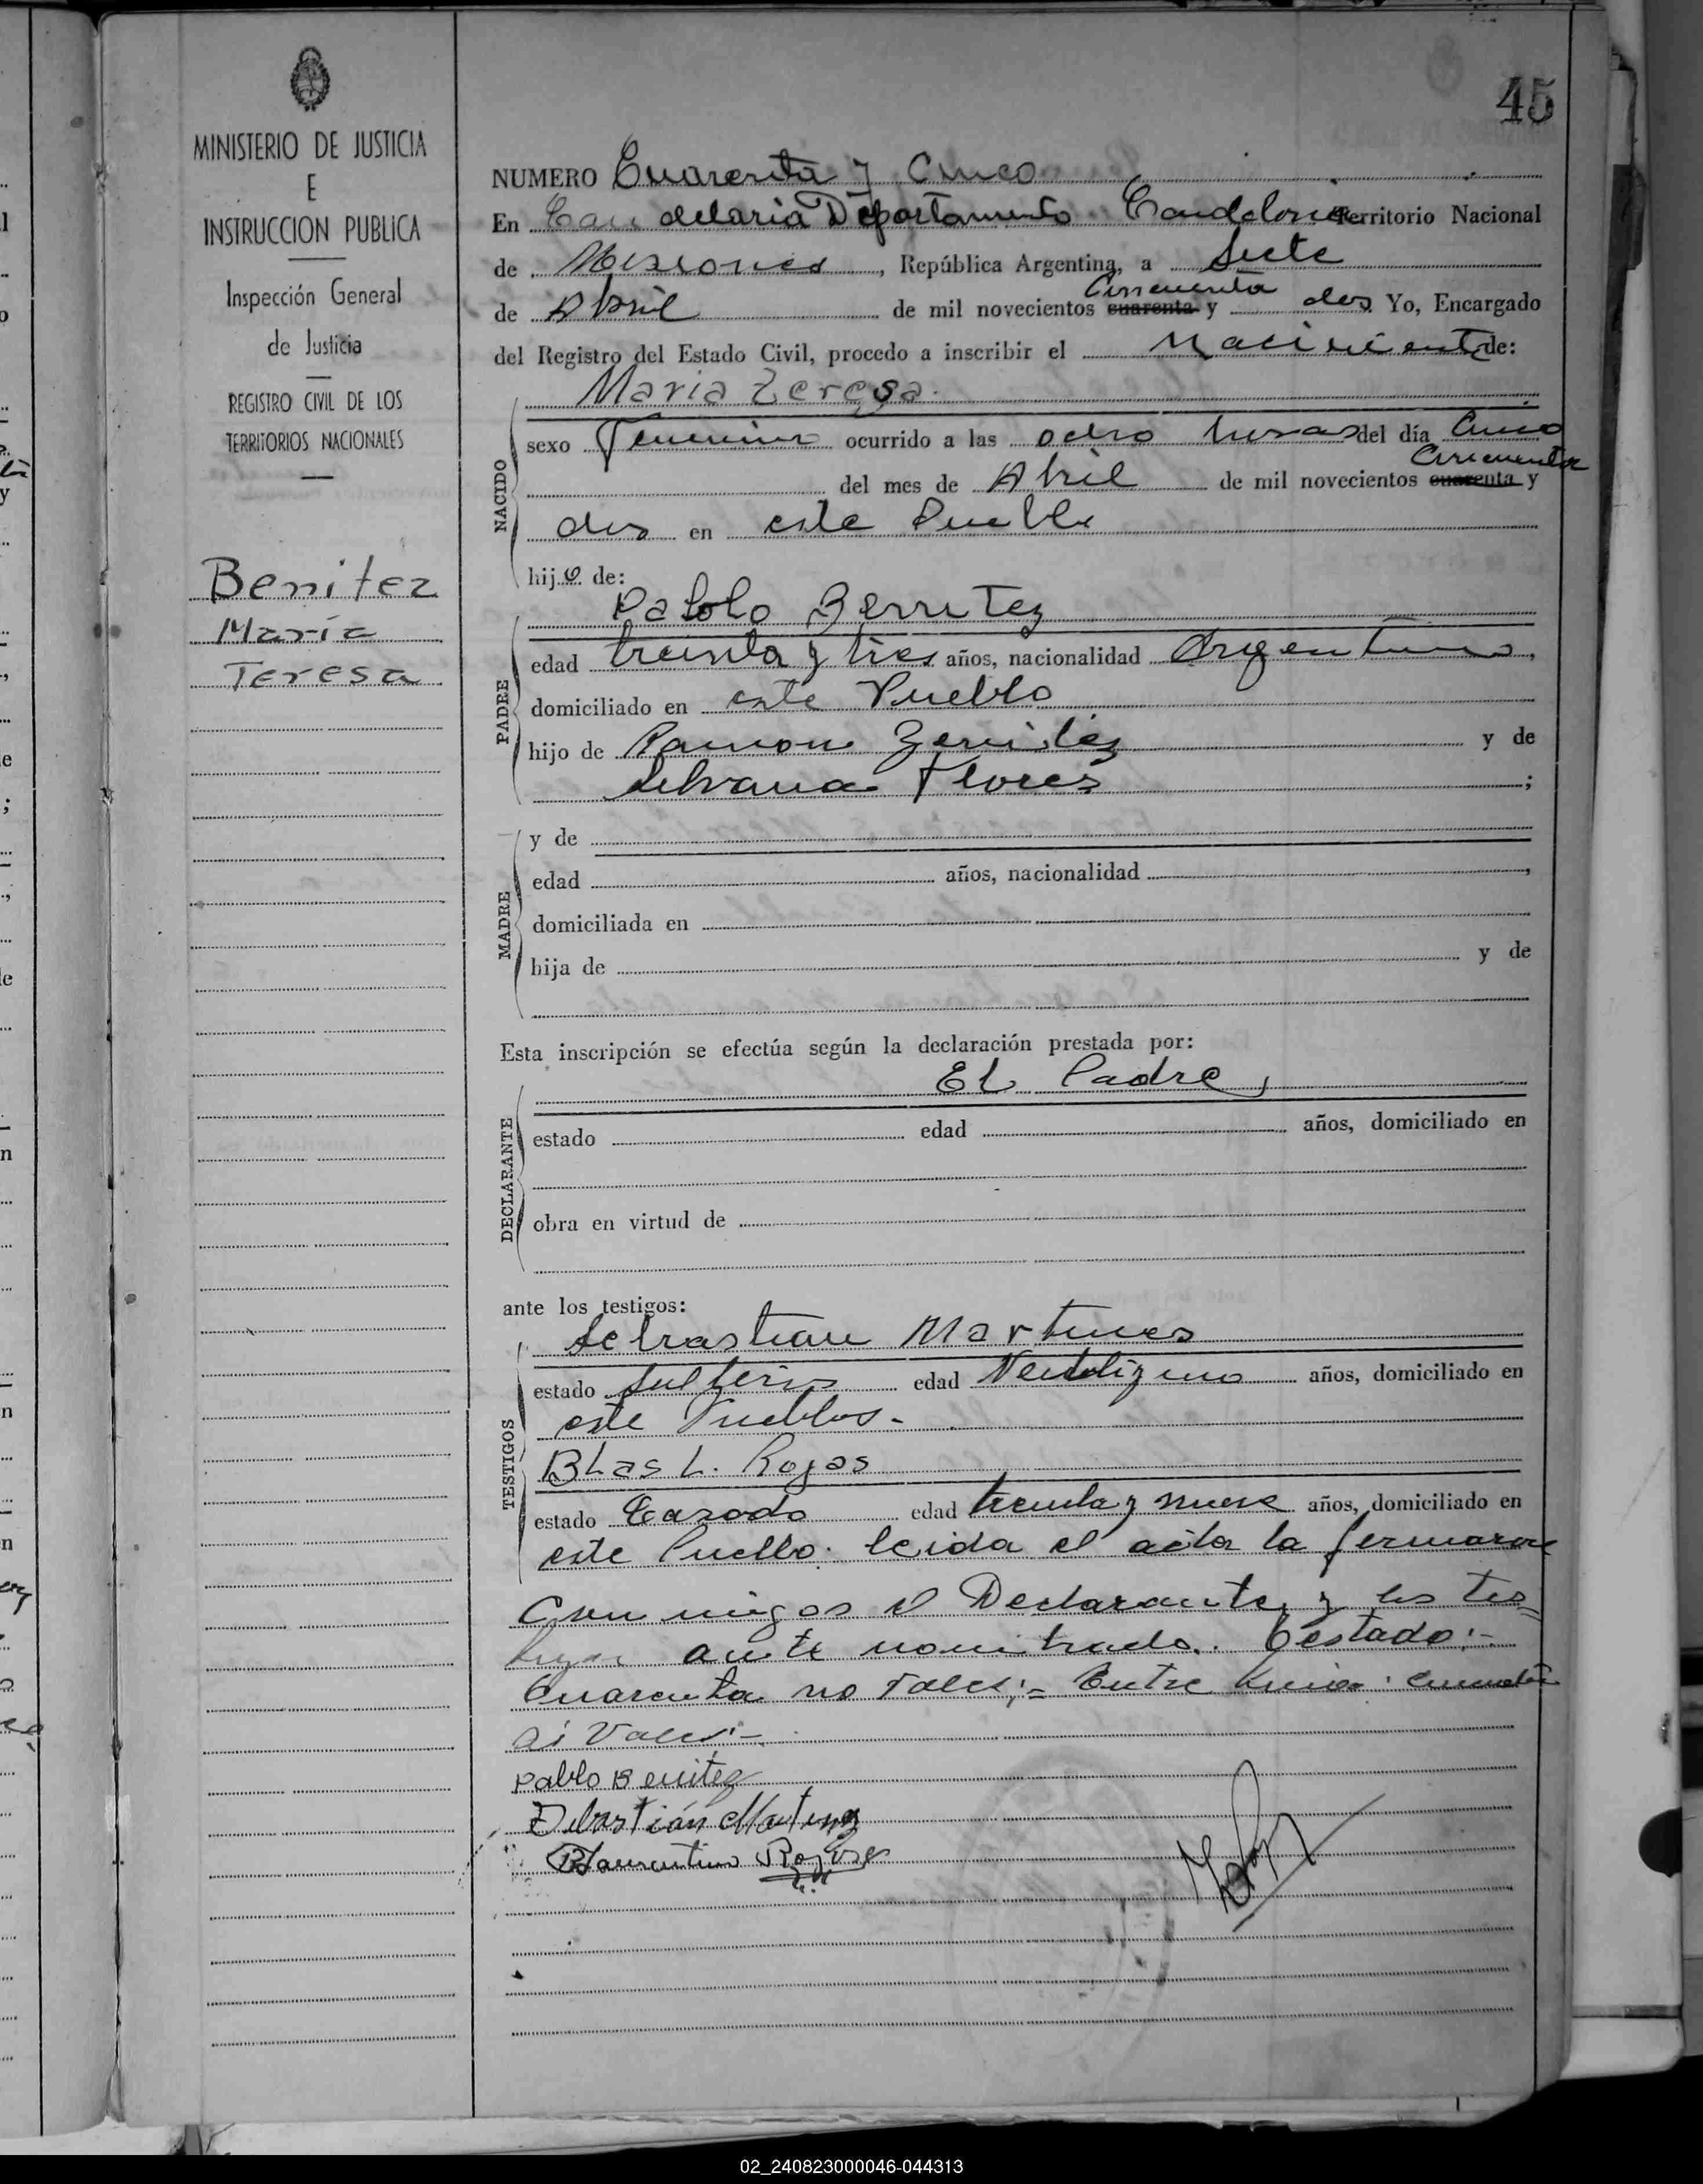 45
MINISTERIO DE JUSTICIA
E
INSTRUCCION PUBLICA
Inspección General
de Justicia
REGISTRO CIVIL DE LOS
TERRITORIOS NACIONALES
Benitez
María
Teresa
NUMERO Cuarenta y Cinco
En Candelaria Departamento Candelaria Territorio Nacional
de Misiones, República Argentina, a Siete
de Abril de mil novecientos cuarenta Cincuenta y dos Yo, Encargado
del Registro del Estado Civil, procedo a inscribir el Nacimiento de:
Maria Teresa.
NACIDO
sexo Femenino ocurrido a las ocho horas del día Cinco
del mes de Abril de mil novecientos cuarenta Cincuenta y
dos en este Pueblo
hijo de:
PADRE
Pablo Benitez
edad treinta y tres años, nacionalidad Argentino,
domiciliado en este Pueblo
hijo de Ramon Benitez y de
Silvana Flores;
MADRE
y de
edad años, nacionalidad,
domiciliada en
hija de y de
Esta inscripción se efectúa según la declaración prestada por:
El Padre,
DECLARANTE
estado edad años, domiciliado en
obra en virtud de
ante los testigos:
TESTIGOS
Sebastian Martines
estado Soltero edad Veintiguno años, domiciliado en
este Pueblos.-
BLas L. Rojas
estado Casado edad treinta y nueve años, domiciliado en
este Pueblo. leida el acta la fermaron
Con migos el Declarante y los tes=
ante nombrado. Testado:-
Cuarenta no vales;= Entre linia: Cincuenta
Si Vales:-
Pablo Benitez
Sebastián Martinez
Blaurentino Rojas
02_240823000046-044313